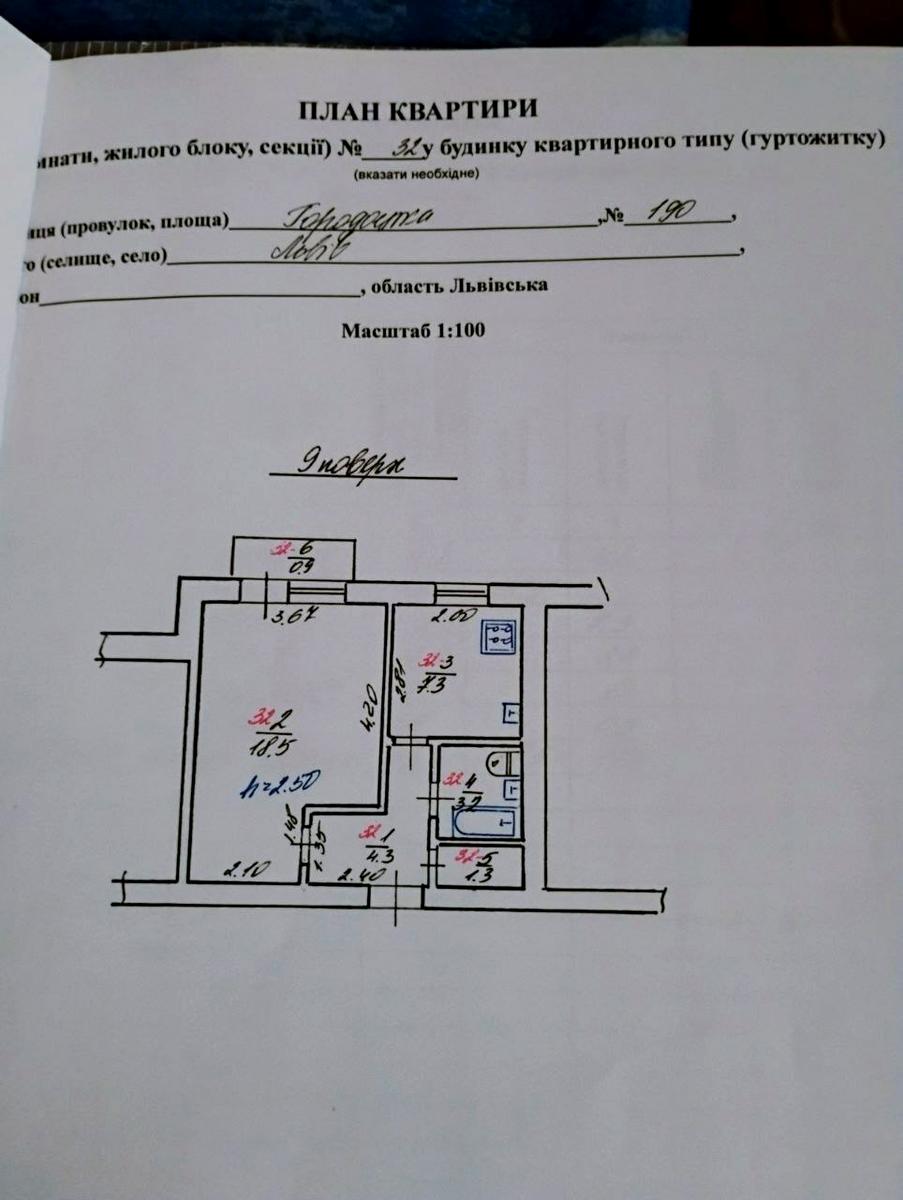 ПЛАН КВАРТИРИ
інати, жилого блоку, секції) № 32 у будинку квартирного типу (гуртожитку)
(вказати необхідне)
иця (провулок, площа) Городоцька ,№ 190 ,
о (селище, село) Львів ,
он , область Львівська
Масштаб 1:100
9 поверх
32-6
0.9
3.67
2.00
32-3
7.3
2.81
4.20
32 2
18.5
h=2.50
32 4
3.2
1.48
1.35
32 1
4.3
32-5
1.3
2.10
2.40